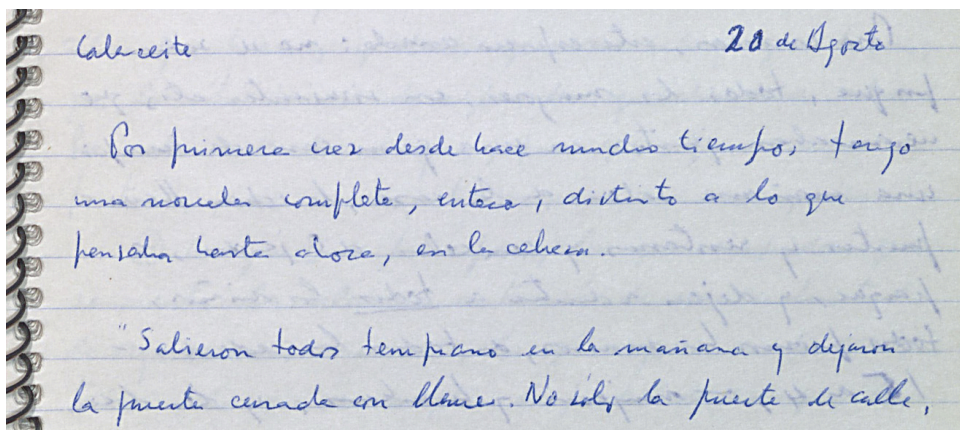 Calaceite 20 de Agosto
Por primera vez desde hace mucho tiempo, tengo
una novela completa, entera, distinto a lo que
pensaba hasta ahora, en la cabeza.
"Salieron todos temprano en la mañana y dejaron
la puerta cerrada con llave. No sólo la puerta de calle,